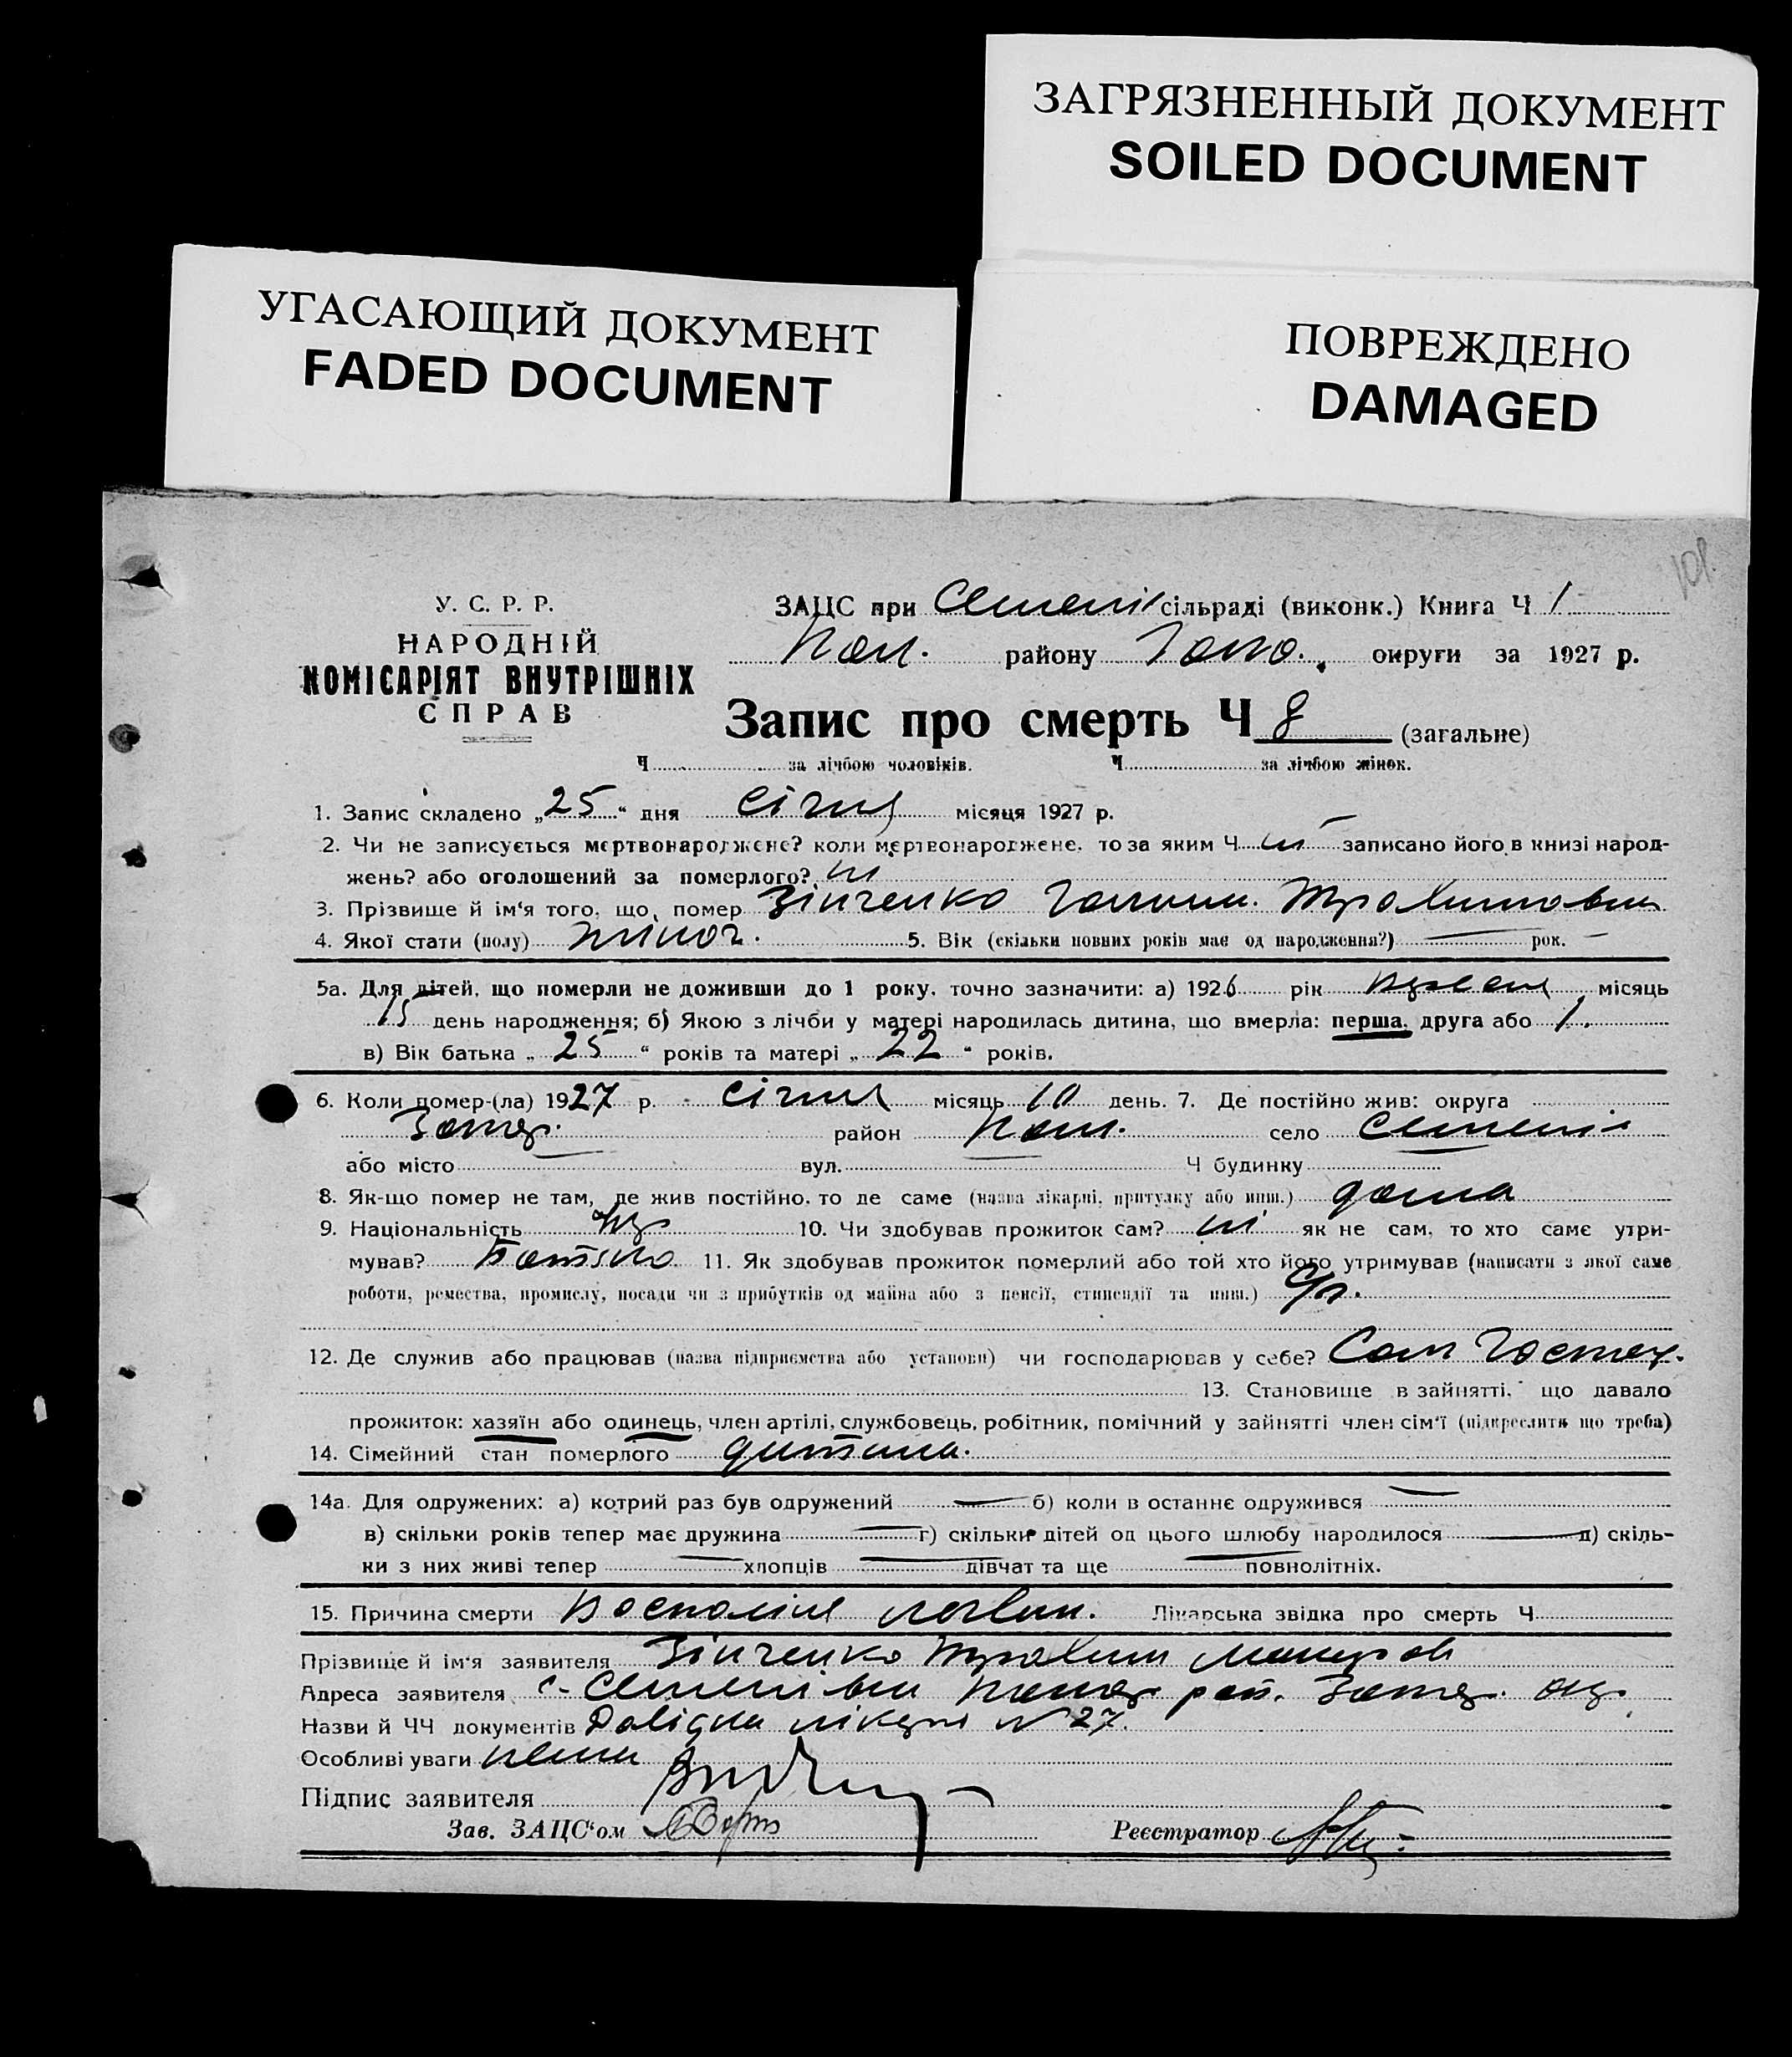 ЗАГРЯЗНЕННЫЙ ДОКУМЕНТ
SOILED DOCUMENT
УГАСАЮЩИЙ ДОКУМЕНТ
FADED DOCUMENT
ПОВРЕЖДЕНО
DAMAGED
У. С. Р. Р.
НАРОДНІЙ
КОМІСАРІЯТ ВНУТРІШНІХ
СПРАВ
ЗАЦС при сільраді (виконк.) Книга Ч 1
району округи за 1927 р.
Запис про смерть Ч 8 (загальне)
Ч за лічбою чоловіків. Ч за лічбою жінок.
1. Запис складено „25“ дня січня місяця 1927 р.
2. Чи не записується мертвонароджене? коли мертвонароджене, то за яким Ч ні записано його в книзі народ-
жень? або оголошений за померлого? ні
3. Прізвище й ім'я того, що помер Зінченко
4. Якої стати (полу) жіноч. 5. Вік (скільки повних років має од народження?) — рок. —
5а. Для дітей, що померли не доживши до 1 року, точно зазначити: а) 1926 рік місяць
15 день народження; б) Якою з лічби у матері народилась дитина, що вмерла: перша, друга або 1.
в) Вік батька „25“ років та матері „22“ років.
6. Коли помер-(ла) 1927 р. січня місяць 10 день. 7. Де постійно жив: округа
район село
або місто — вул. — Ч будинку —
8. Як-що помер не там, де жив постійно, то де саме (назва лікарні, притулку або инш.) дома
9. Національність укр 10. Чи здобував прожиток сам? ні як не сам, то хто саме утри-
мував? Батько 11. Як здобував прожиток померлий або той хто його утримував (написати з якої саме
роботи, ремества, промислу, посади чи з прибутків од майна або з пенсії, стипендії та инш.) с/г.
12. Де служив або працював (назва підприємства або установи) чи господарював у себе? Сам
13. Становище в зайнятті, що давало
прожиток: хазяїн або одинець, член артілі, службовець, робітник, помічний у зайнятті член сім'ї (підкреслити що треба)
14. Сімейний стан померлого дитина.
14а. Для одружених: а) котрий раз був одружений — б) коли в останнє одружився —
в) скільки років тепер має дружина — г) скільки дітей од цього шлюбу народилося — д) скіль-
ки з них живі тепер — хлопців — дівчат та ще — повнолітніх.
15. Причина смерти Лікарська звідка про смерть Ч
Прізвище й ім'я заявителя Зінченко
Адреса заявителя с. Семенівка рай.
Назви й ЧЧ документів Довідка лікаря № 27.
Особливі уваги нема
Підпис заявителя
Зав. ЗАЦС'ом
Реєстратор